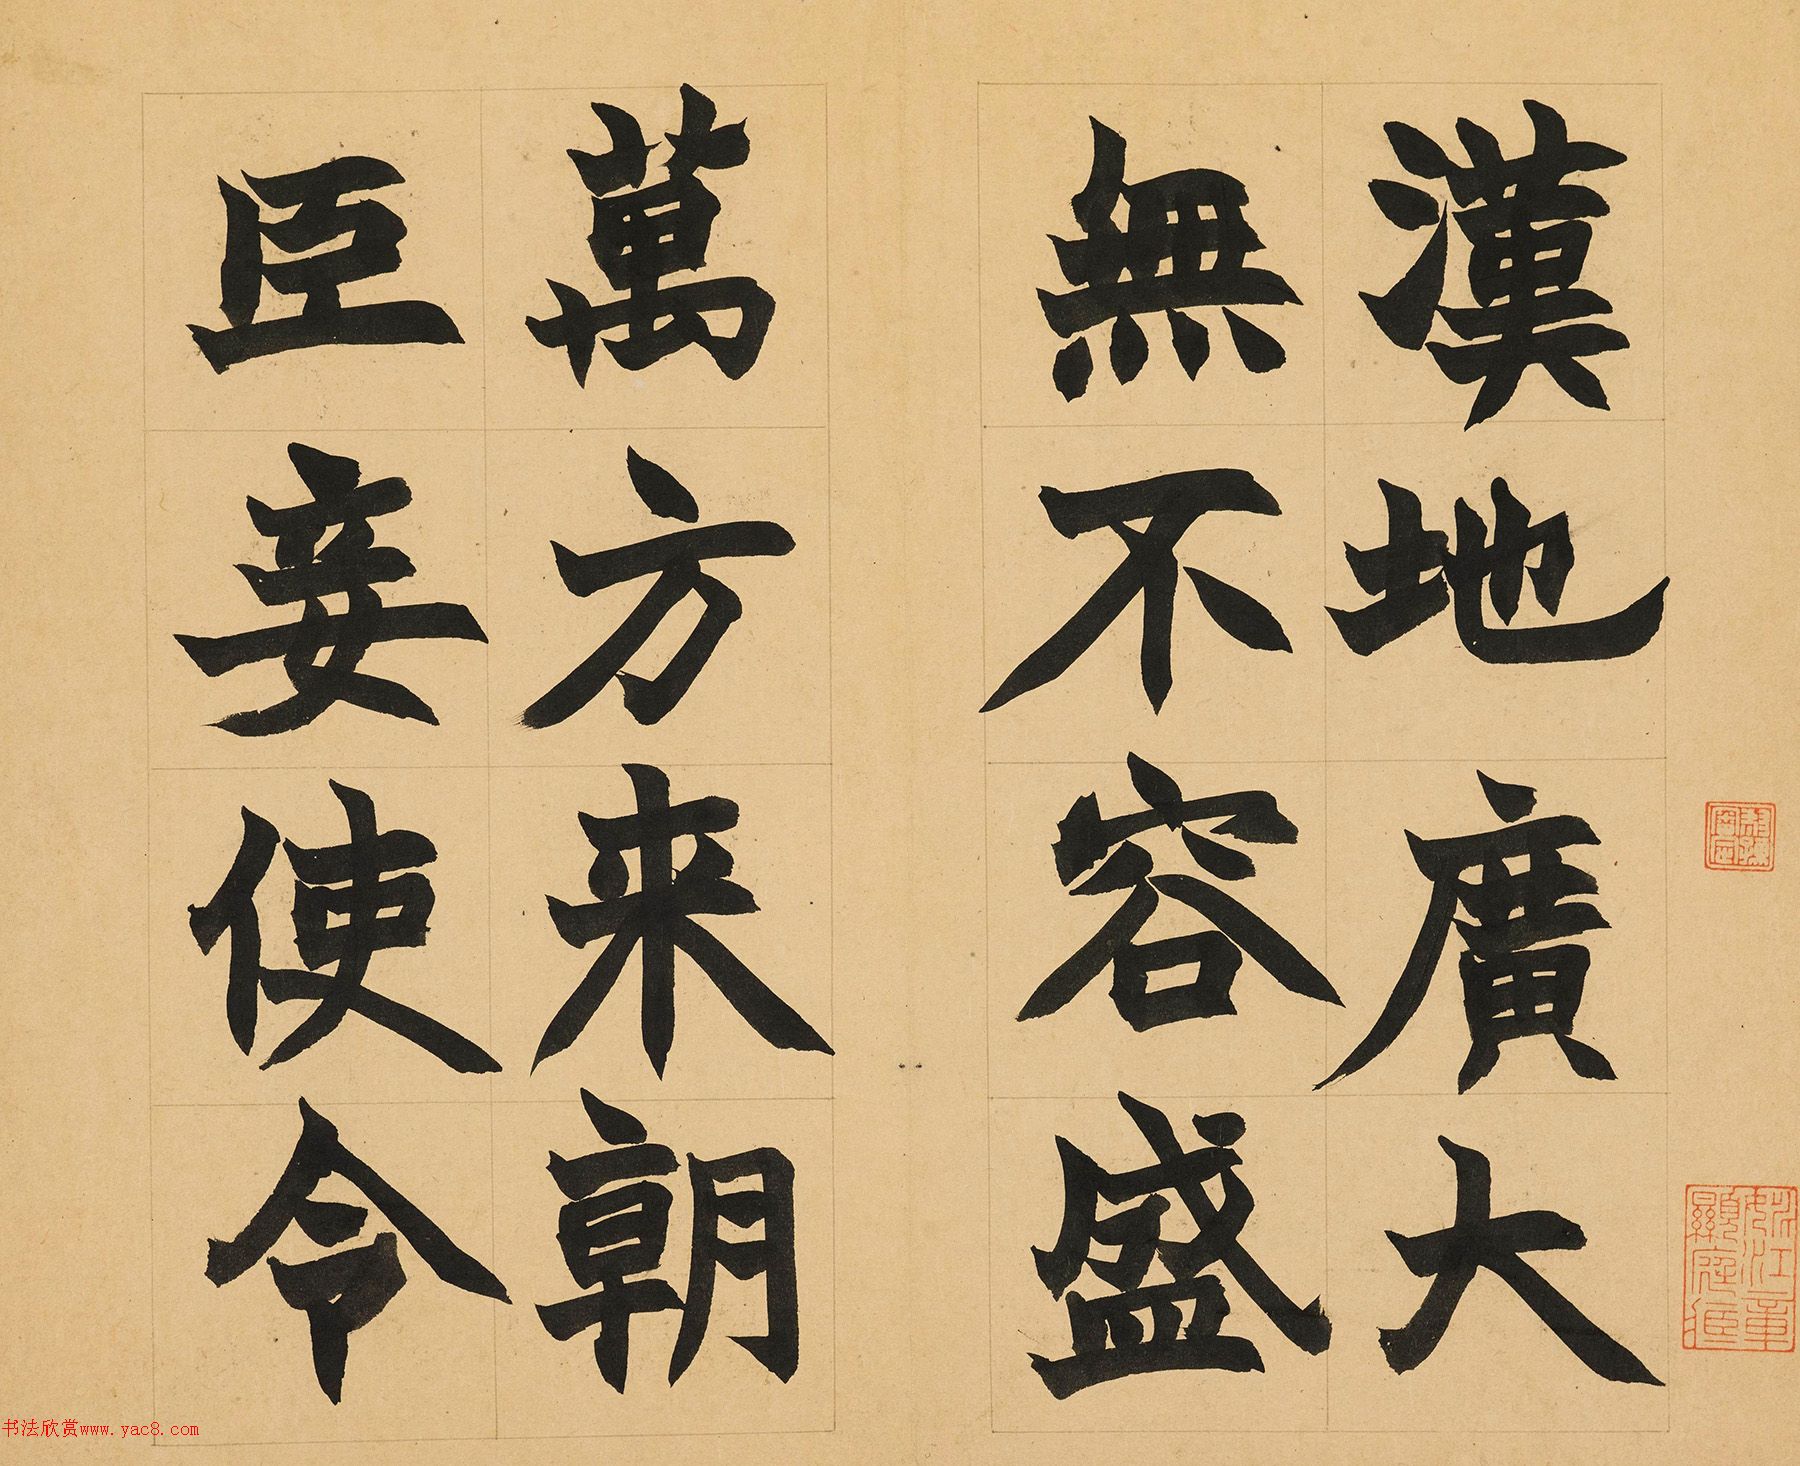 漢地廣大
無不容盛
萬方来朝
臣妾使令
书法欣赏www.yac8.com